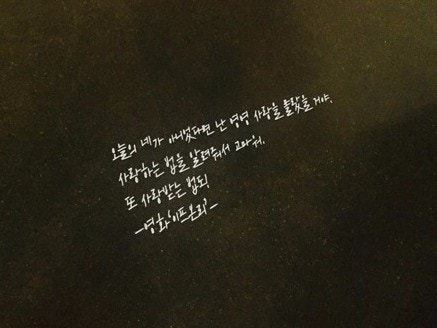 오늘의 네가 아니었다면 난 영영 사랑을 몰랐을 거야.
사랑하는 법을 알려줘서 고마워.
또 사랑받는 법도!
-영화'이프온리'-